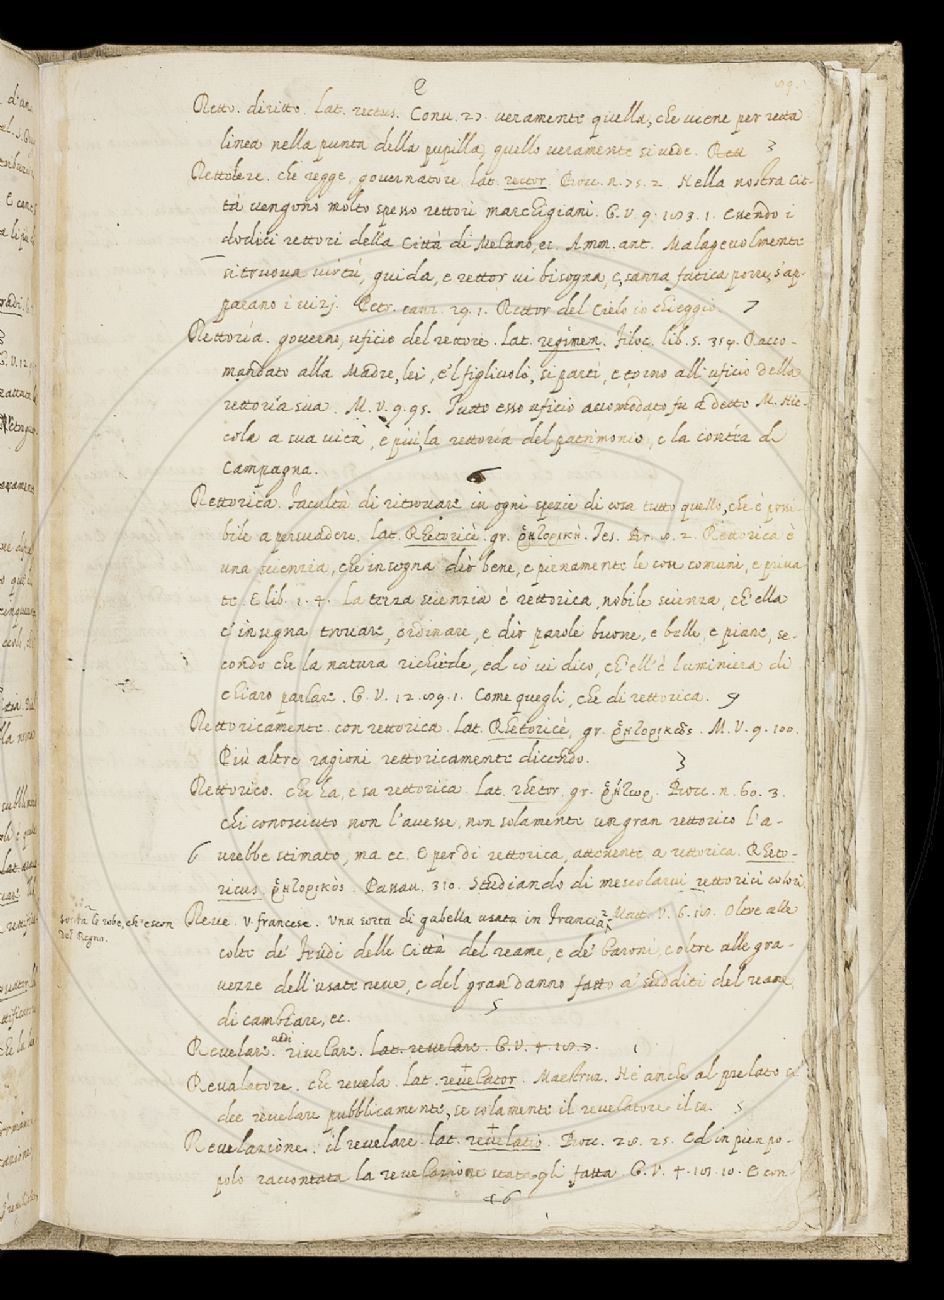 Retto. diritto. Lat. rectus. Conv. 27. veramente quella, che viene per retta
linea nella punta della pupilla, quello veramente si vede. Rett
Rettore. che regge, governatore. lat. rector. Bocc. n. 75. 2. Nella nostra Cit-
tà vengono molto spesso rettori marchigiani. G. V. 9. 183. 1. Essendo i
dodici rettori della Città di Melano, ec. Amm. ant. Malagevolmente
si truova virtù, guida, e rettor vi bisogna, e, sanza fatica porre, s'ap-
parano i vizj. Petr. canz. 29. 1. Rettor del Cielo io chieggio. 7
Rettoria. governo, uficio del rettore. Lat. regimen. Filoc. lib. 5. 354. Racco-
mandato alla Madre, lei, e'l figliuoli, si partì, e torno all'uficio della
rettoria sua. M. V. 9. 95. Tutto esso uficio accomodato fu a detto M. Nic-
cola a sua vita, e più, la rettoria del patrimonio, e la contea di
Campagna.
6
Rettorica. Facultà di ritrovare in ogni spezie di cosa tutto quello, che è possi-
bile a persuadere. Lat. Rhetoricè. gr. ῥητορική. Tes. Br. 8. 2. Rettorica è
una scienzia, che insegna dir bene, e pienamente le cose comuni, e priva
te. E lib. 1. 4. La terza scienzia è rettorica, nobile scienza, ch'ella
c'insegna trovare, ordinare, e dir parole buone, e belle, e piane, se-
condo che la natura richiede, ed io vi dico, ch'ell'è luminiera di
chiaro parlare. G. V. 12. 89. 1. Come quegli, che di rettorica. 9
Rettoricamente. con rettorica. Lat. Rhetoricè, gr. ῥητορικῶς. M. V. 9. 100.
Più altre ragioni rettoricamente dicendo. 3
Rettorico. che ha, e sa rettorica. Lat. rhetor. gr. ῥήτωρ. Bocc. n. 60. 3.
chi conosciuto non l'avesse, non solamente un gran rettorico l'a-
6 vrebbe stimato, ma ec. E per di rettorica, attenente a rettorica. Rheto-
ricus, ῥητορικός. Passav. 310. Studiando di mescolarvi rettorici colori
sovra le robe, ch'escon
del Regno.
Reve. v. francese. Una sorta di gabella usata in Francia. Matt. V. 6. 18. Oltre alle
colte de' Feudi delle Città del reame, e de' Baroni, e oltre alle gra-
vezze dell'usate reve, e del gran danno fatto a' sudditi del reame,
di cambiare, ec. 5
Revelare. vedi rivelare. lat. revelare. G. V. 4. 18. 7.
Revelatore. che revela. Lat. revelator. Maestruz. Nè anche al prelato si
dee revelare pubblicamente, se solamente il revelatore il sa. 5
Revelazione. il revelare. lat. revelatio. Bocc. 28. 25. Ed in pien po-
polo raccontata la revelazione statagli fatta. G. V. 4. 18. 10. E con
+6